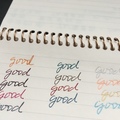 good good
good good good
good good good
good good good
good good good